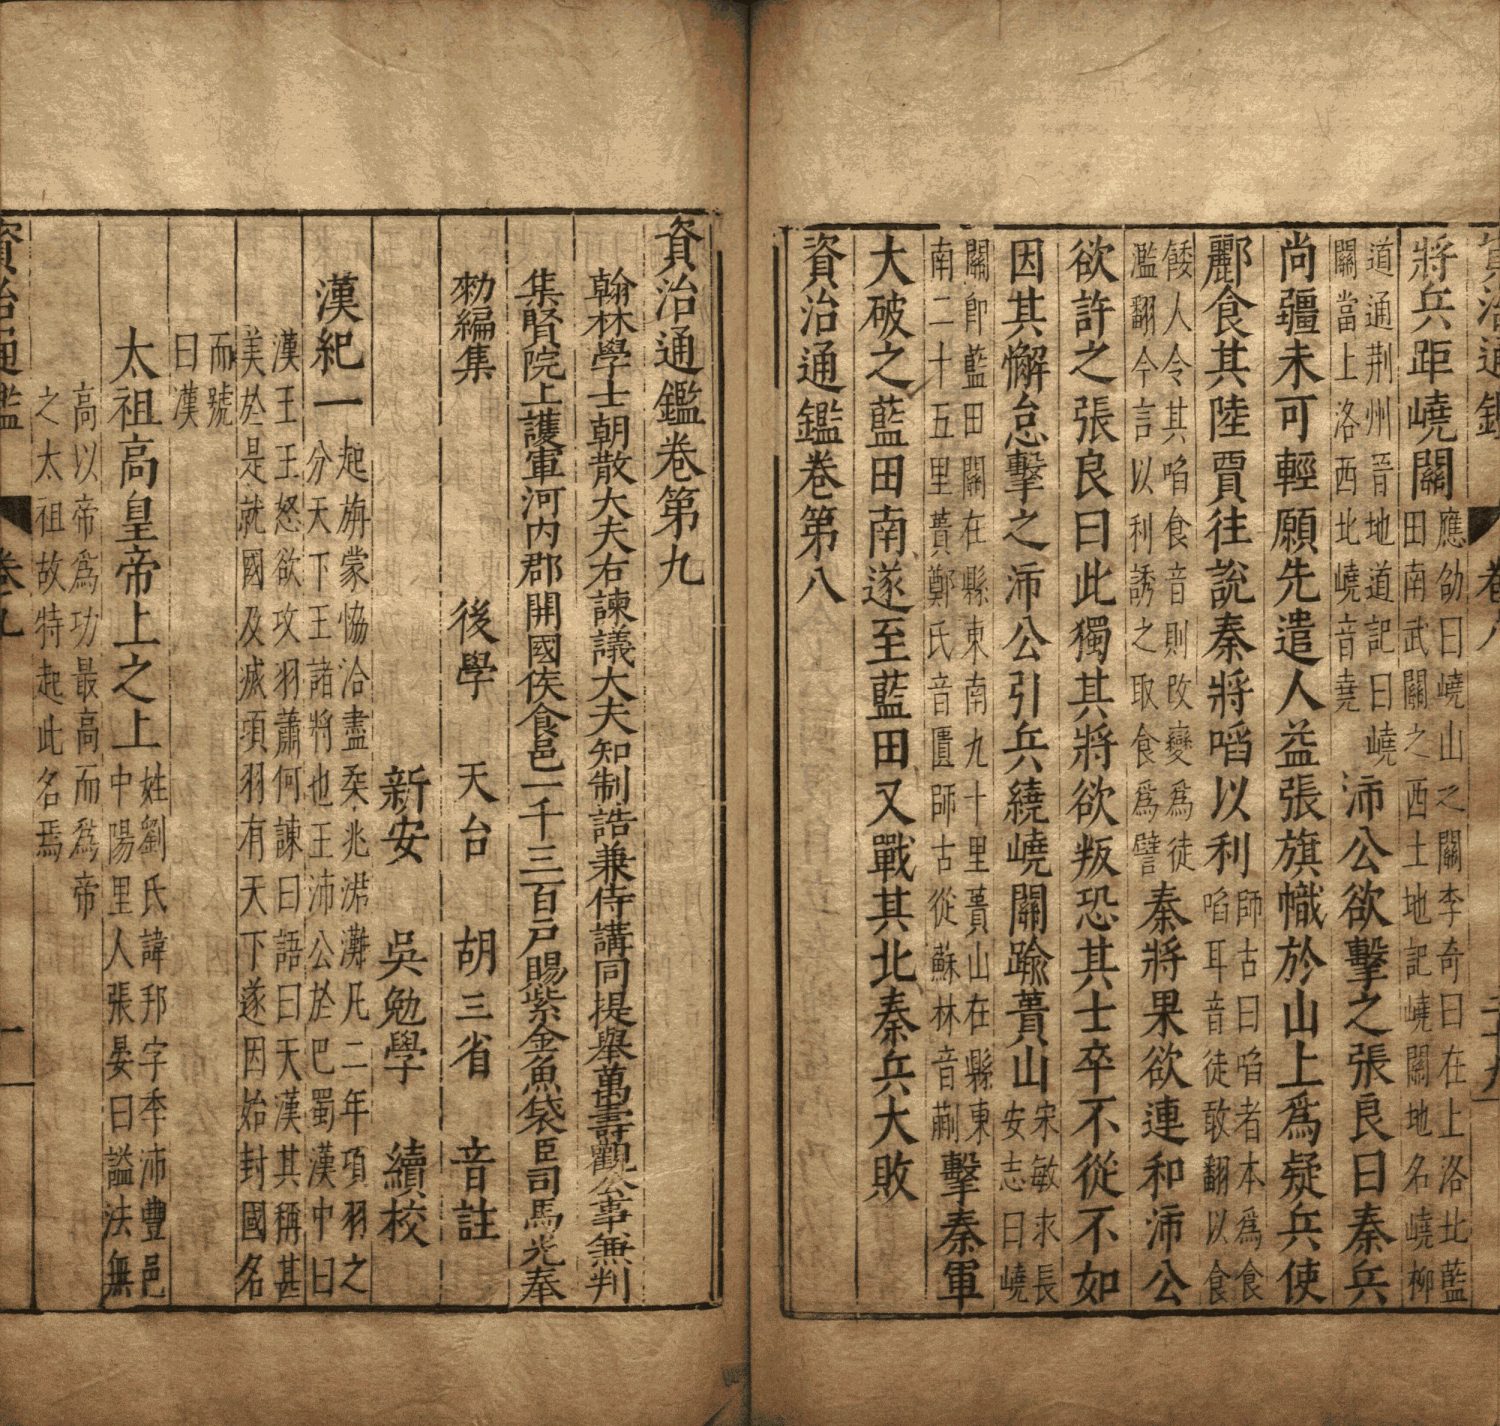 資治通鑑 卷八 二十九
將兵距嶢關應劭曰嶢山之關李奇曰在上洛北藍田南武關之西土地記嶢關地名嶢柳
道通荆州晉地道記曰嶢關當上洛西北嶢音堯沛公欲擊之張良曰秦兵
尚疆未可輕願先遣人益張旗幟於山上爲疑兵使
酈食其陸賈往說秦將啗以利師古曰啗者本爲食啗耳音徒敢翻以食
餧人令其啗食音則改變爲徒濫翻今言以利誘之取食爲譬秦將果欲連和沛公
欲許之張良曰此獨其將欲叛恐其士卒不從不如
因其懈怠擊之沛公引兵繞嶢關踰蕢山宋敏求長安志曰嶢
關卽藍田關在縣東南九十里蕢山在縣東南二十五里蕢鄭氏音匱師古從蘇林音蒯擊秦軍
大破之藍田南遂至藍田又戰其北秦兵大敗
資治通鑑卷第八
資治通鑑卷第九
翰林學士朝散大夫右諫議大夫知制誥兼侍講同提舉萬壽觀公事兼判
集賢院上護軍河內郡開國侯食邑一千三百户賜紫金魚袋臣司馬光奉
勑編集 後學 天台 胡三省 音註
新安 吳勉學 續校
漢紀一起旃蒙協洽盡柔兆涒灘凡二年項羽之分天下王諸將也王沛公於巴蜀漢中曰
漢王王怒欲攻羽蕭何諫曰語曰天漢其稱甚美於是就國及滅項羽有天下遂因始封國名
而號曰漢
太祖高皇帝上之上姓劉氏諱邦字季沛豐邑中陽里人張晏曰謚法無
高以帝爲功最高而爲帝之太祖故特起此名焉
資治通鑑 卷九 一